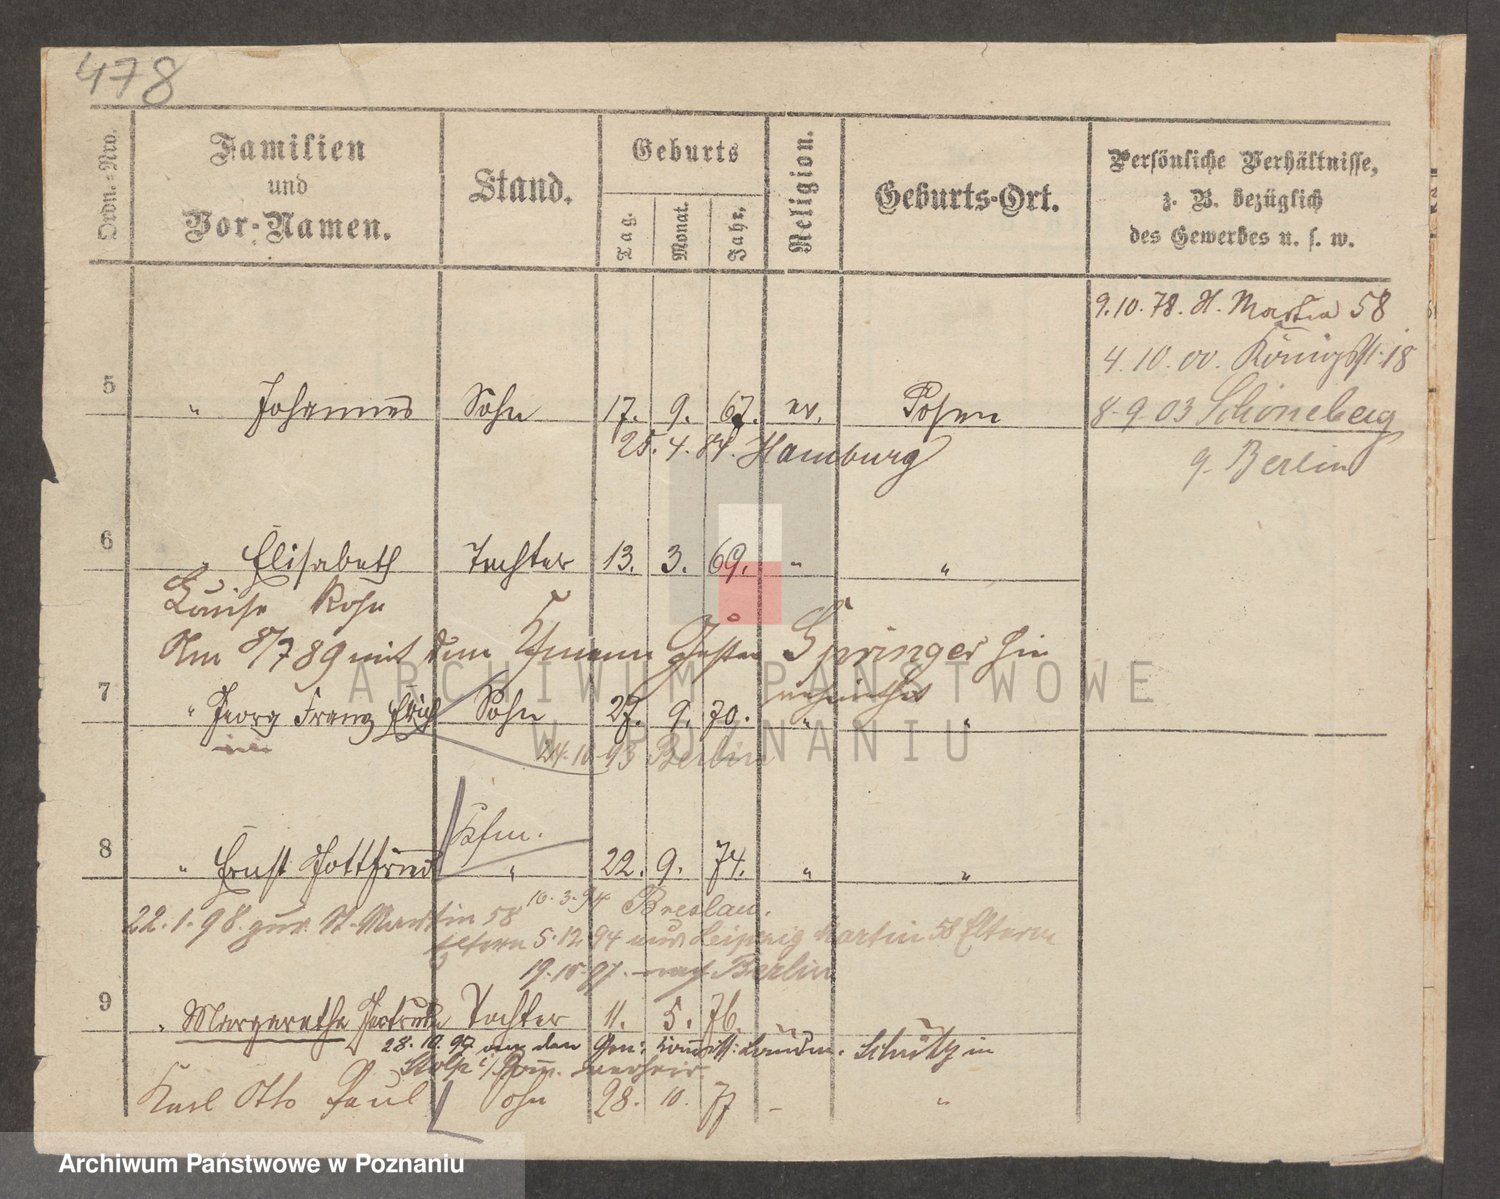 478
Ordn.-Nro.
Familien
und
Vor-Namen.
Stand.
Geburts
Tag.
Monat.
Jahr,
Religion.
Geburts-Ort.
Persönliche Verhältnisse,
z. B. bezüglich
des Gewerbes u. s. w.
9.10.78. St. Martin 58
4.10.00. Königsstr. 18
5 " Johannes Sohn 17. 9. 67. ev. Posen 8.9.03 Schöneberg
25.4.84. Hamburg
9. Berlin
6 " Elisabeth Tochter 13. 3. 69. " "
Louise Rosa
Am 8/7 89 mit dem Kfmann Springer hie
verheirathet
7 " Georg Franz Erich Sohn 27. 9. 70. " "
24.10.93 Berlin
Kfm.
8 " Ernst Gottfried " 22. 9. 74. " "
10.3.94 Breslau.
22.1.98. zur. St. Martin 58
Eltern 5.12.94 aus Leipzig Martin 58 Eltern
19.10.97. nach Berlin
9 " Margarethe Gertrude Tochter 11. 5. 76.
28.10.97 an den Gen: Kommiss: Schütz in
Stolp i/Pom. verheir.
Karl Otto Paul Sohn 28. 10. 77 - "
ARCHIWUM PAŃSTWOWE
W POZNANIU
Archiwum Państwowe w Poznaniu